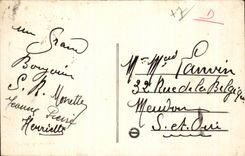 un Grand
Bonjour
S. R. Monette
Jeanne Pierre
Henriette
+7
D
Mr Mme Lanvin
32 Rue de la Belgique
Meudon
S. et Oise